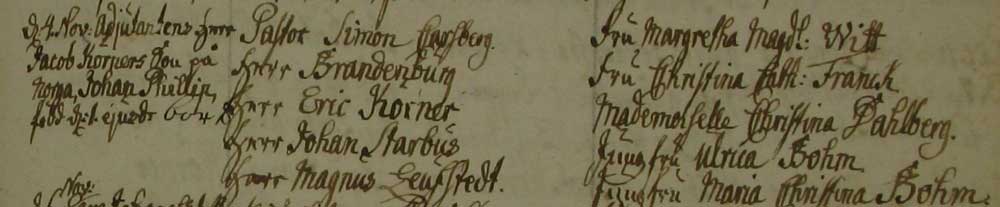 d. 4. Nov: Adjutantens Herr
Jacob Korners Son på
Norga, Johan Phillip,
född d. 1. ejusd:
Pastor Simon Carlberg.
Herr Brandenburg
Herr Eric Korner
Herr Johan Starbus
Herr Magnus Leufstedt.
Fru Margretha Magdl: Witt
Fru Christina Cath: Franck
Mademoiselle Christina Dahlberg.
Jungfru Ulrica Bohm
Jungfru Maria Christina Bohm.
Nov: